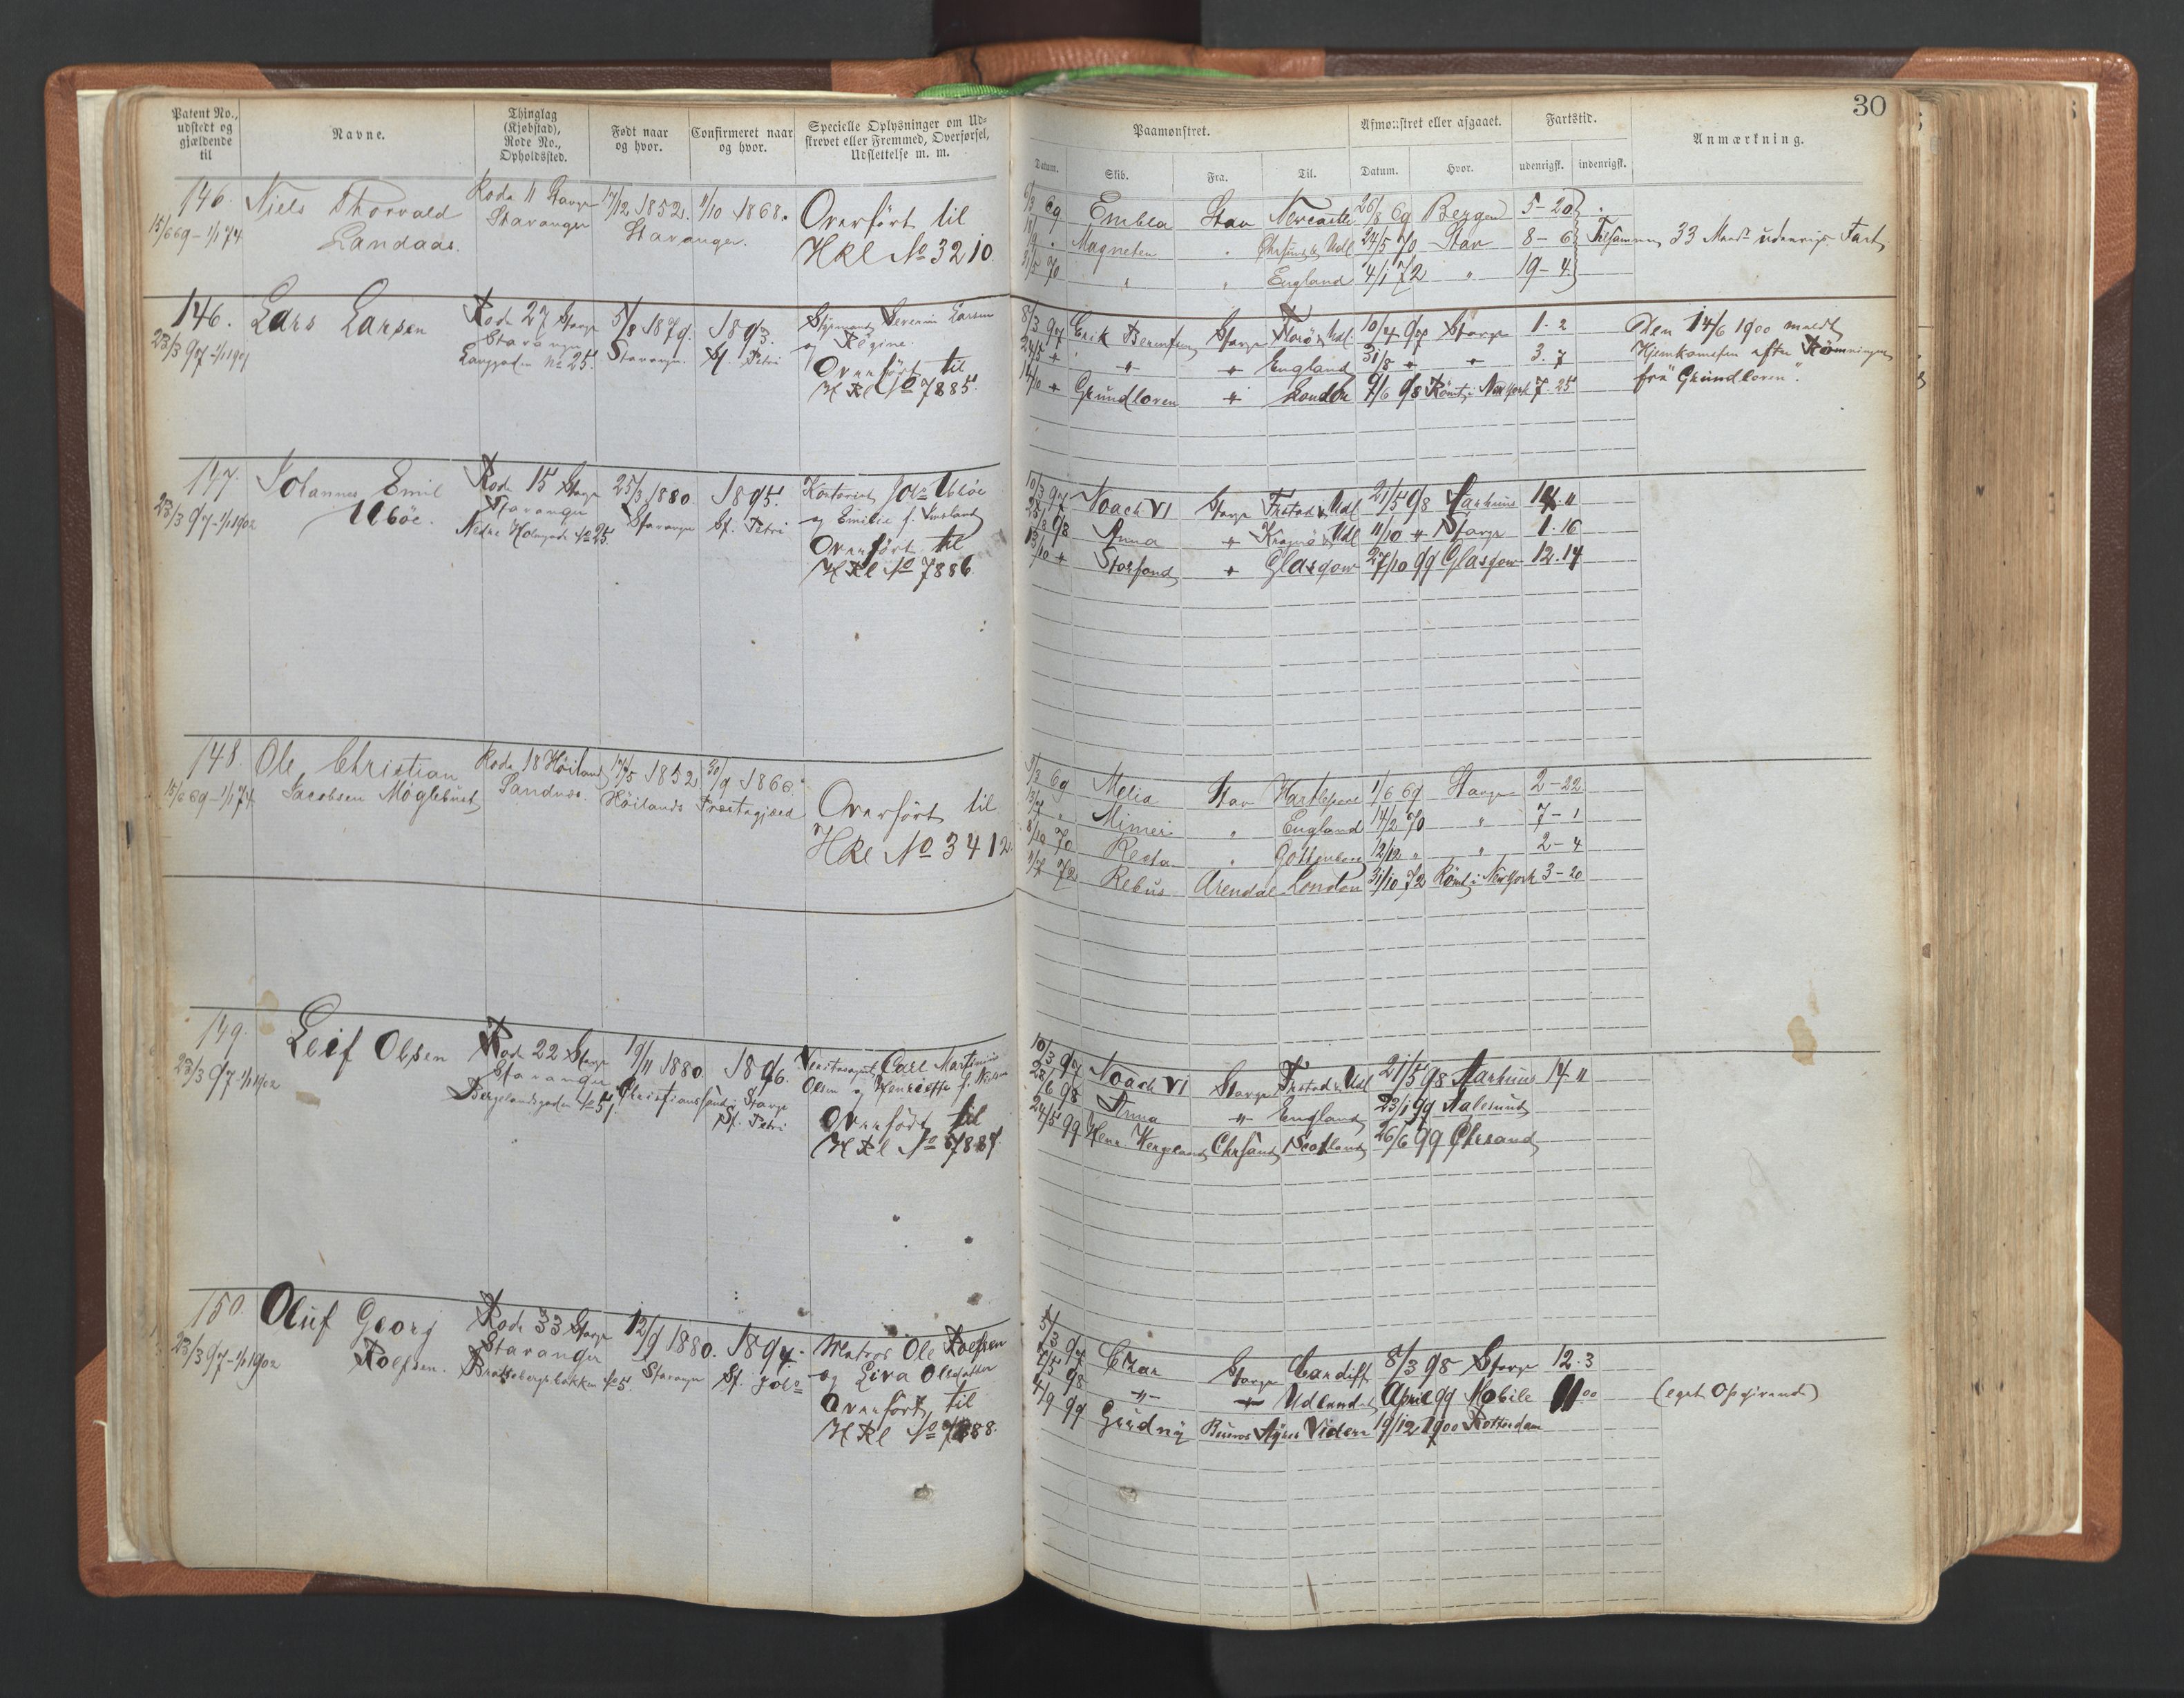 30
Patent No., udstedt og gjældende til
Navne.
Thinglag (Kjøbstad), Rode No., Opholdssted.
Født naar og hvor.
Confirmeret naar og hvor.
Specielle Oplysninger om Udskrevet eller Fremmed, Overførsel, Udslettelse m. m.
Paamønstret.
Afmønstret eller afgaaet.
Fartstid.
Anmærkning.
Datum. Skib. Fra. Til. Datum. Hvor. udenrigsk. indenrigsk.
146. Niels Thorvald Landaas.
15/6 69 - 1/1 74
Rode 11 Stavgr Stavanger
17/12 1852. Stavanger.
1/10 1868.
Overført til
HRl No 3210.
69 Embla Stav Newcastle 26/8 69 Bergen 5-20
Magneten " Chrsund & Udl 24/5 70 Stav 8-6 Tilsammen 33 Maads udenrigs Fart
31/5 70 " " England 4/1 72 " 19-4
146. Lars Larsen
23/3 97 - 1/1 1901
Rode 27 Stavgr
Stavanger
Langgaden No 25.
5/8 1879. Stavangr.
1893. St. Petri
Styrmand Severin Larsen
og Regine.
Overført til
HRl No 7885.
8/3 97 Erik Berentsen Stavgr Florö & Udl. 10/4 97 Stavgr 1.2
24/5 " " " England 31/8 " " 3.7
14/10 " Grundloven " London 9/6 98 Römt i New York 7.25
Den 14/6 1900 meldt
Hjemkomsten efter Römningen
fra "Grundloven".
147. Johannes Emil Ubøe.
23/3 97 - 1/1 1902
Rode 15 Stavgr
Stavanger
Nedre Holmgade No 25.
25/3 1880. Stavangr
1895. St. Petri
Kontorist Johs Ubøe
og Emilie f.
Overført til
HRl No 7886.
10/3 97 Noach VI Stavgr Frstad & Udl 21/5 98 Aarhuus 14. 11
98 Anna " Kragerö & Udl 11/10 " Stavgr 1.16
13/10 " Storfond " Glasgow 27/10 99 Glasgow 12.14
148. Ole Christian
Jacobsen Møglebust
15/6 69 - 1/1 74
Rode 18 Höiland
Sandnes.
17/5 1852 30/9 1866.
Höilands Præstegjæld
Overført til
HRl No 3412.
3/3 69 Melia Stav Hartlepool 1/6 69 Stavgr 2-22
Mimer " England 14/2 70 " 7-1
8/10 70 Resta " Gottenborg 12/12 " " 2-4
72 Rebus Arendal London 31/10 72 Römt i New York 3-20
149. Leif Olsen
23/3 97 - 1/1 1902
Rode 22 Stavgr
Stavanger
Bergelandsgaden No 51.
19/11 1880. Christianssund
1896. Stavgr St. Petri
Carl Martinius
Olsen og Henriette f.
Overført til
HRl No 7887
10/3 97 Noach VI Stavgr Frstad & Udl 21/5 98 Aarhuus 14 "
22/6 98 Anna " England 23/1 99 Aalesund
24/5 99 Henr Wergeland Chrsand Scotland 26/6 99 Chrsand
150. Oluf Georg Roelfsen.
23/3 97 - 1/1 1902
Rode 33 Stavgr
Stavanger
Brattebergsbakken No 5.
12/9 1880. Stavangr
1894. St. Johs
Matros Ole Roelfsen
og Lina Olsdatter
Overført til
HRl No 7888.
5/3 97 Czar Stavgr Cardiff 8/3 98 Stavgr 12.3
98 " " Udlandet April 99 Mobile 11 00 (eget Opgivende)
4/9 99 Gudny Buenos Ayres Videre 19/12 1900 Rotterdam